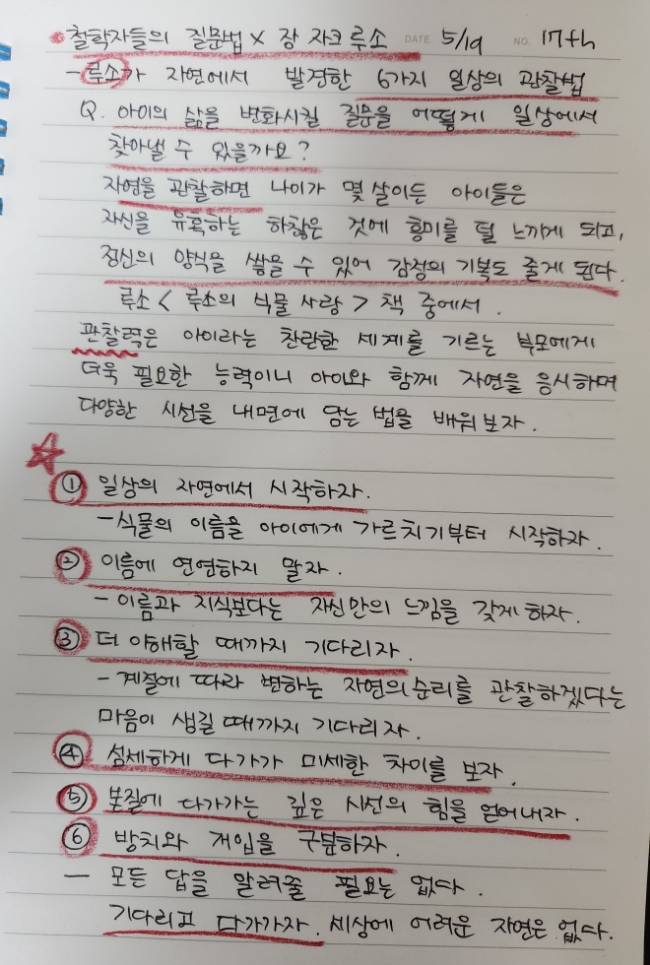 철학자들의 질문법 × 장 자크 루소 DATE 5/19 NO. 17th
- 루소가 자연에서 발견한 6가지 일상의 관찰법
Q. 아이의 삶을 변화시킬 질문을 어떻게 일상에서
찾아낼 수 있을까요?
자연을 관찰하면 나이가 몇 살이든 아이들은
자신을 유혹하는 하찮은 것에 흥미를 덜 느끼게 되고,
정신의 양식을 쌓을 수 있어 감정의 기복도 줄게 된다.
루소 < 루소의 식물 사랑 > 책 중에서.
관찰력은 아이라는 찬란한 세계를 기르는 부모에게
더욱 필요한 능력이니 아이와 함께 자연을 응시하며
다양한 시선을 내면에 담는 법을 배워보자.
① 일상의 자연에서 시작하자.
- 식물의 이름을 아이에게 가르치기부터 시작하자.
② 이름에 연연하지 말자.
- 이름과 지식보다는 자신만의 느낌을 갖게 하자.
③ 더 야해할 때까지 기다리자.
- 계절에 따라 변하는 자연의 순리를 관찰하겠다는
마음이 생길 때까지 기다리자.
④ 섬세하게 다가가 미세한 차이를 보자.
⑤ 본질에 다가가는 깊은 시선의 힘을 얻어내자.
⑥ 방치와 개입을 구분하자.
- 모든 답을 알려줄 필요는 없다.
기다리고 다가가자. 세상에 어려운 자연은 없다.